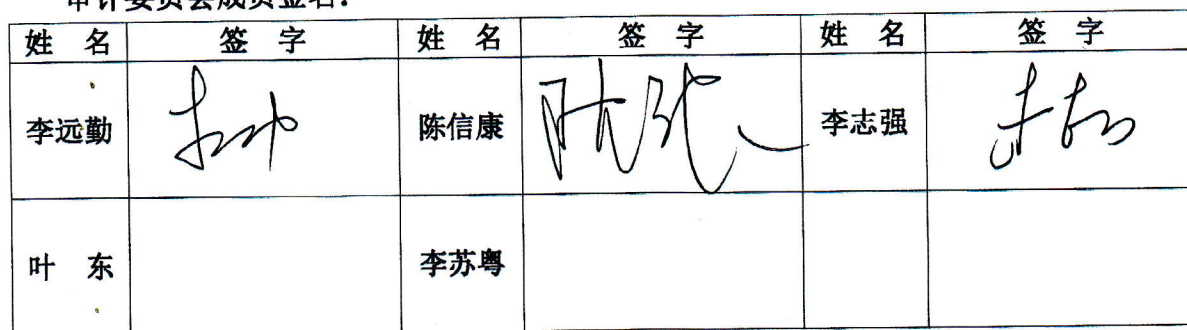 审计委员会成员签名：
姓 名 签 字 姓 名 签 字 姓 名 签 字
李远勤 陈信康 李志强
叶 东 李苏粤